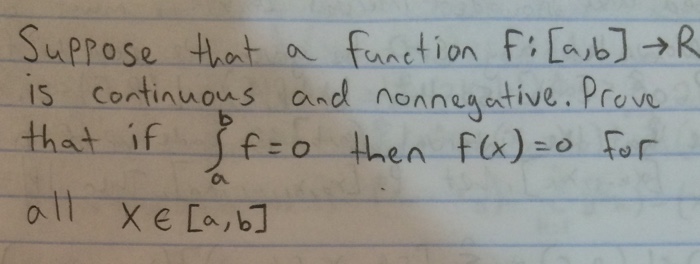 Suppose that a function f: [a,b] → R
is continuous and nonnegative. Prove
that if ∫_a^b f = 0 then f(x) = 0 for
all x ∈ [a,b]